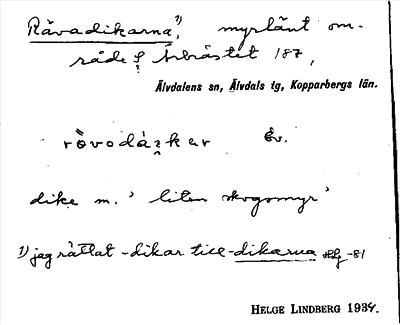 Rävadikarna,¹⁾ myrlänt om-
råde S Årbråstet 187,
Älvdalens sn, Älvdals tg, Kopparbergs län.
rövodάzker Äv.
dike m. 'liten skogsmyr'
1) jag rättat -dikar till -dikarna -81
HELGE LINDBERG 1934.